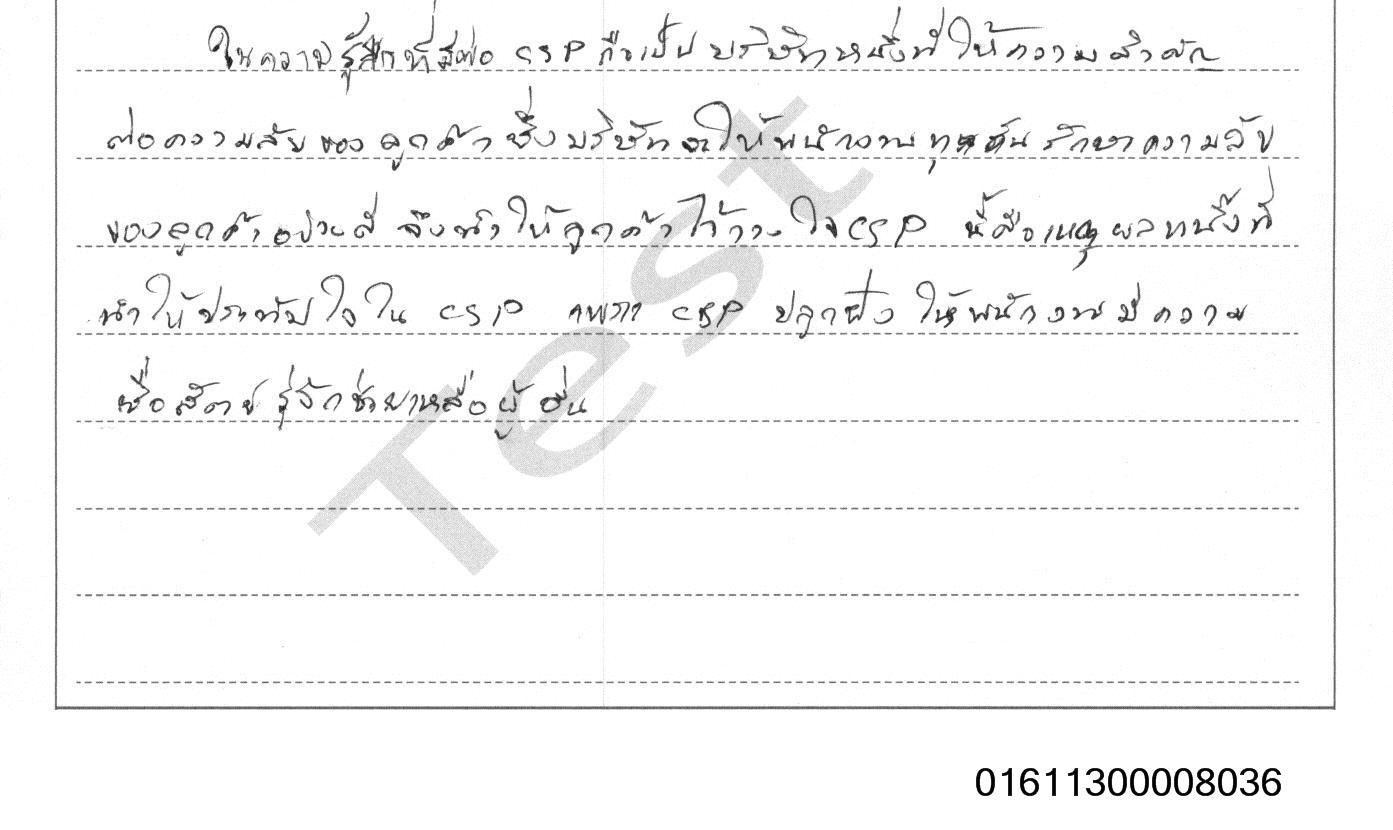 ในความรู้สึกที่มีต่อ CSP ถือเป็นบริษัทหนึ่งที่ให้ความสำคัญ
ต่อความลับของลูกค้า ซึ่งบริษัทจะให้พนักงานทุกคนรักษาความลับ
ของลูกค้าอย่างดี จึงทำให้ลูกค้าไว้วางใจ CSP นี้คือเหตุผลหนึ่งที่
ทำให้ประทับใจใน CSP เพราะ CSP ปลูกฝังให้พนักงานมีความ
ซื่อสัตย์ รู้จักช่วยเหลือผู้อื่น
Test
01611300008036